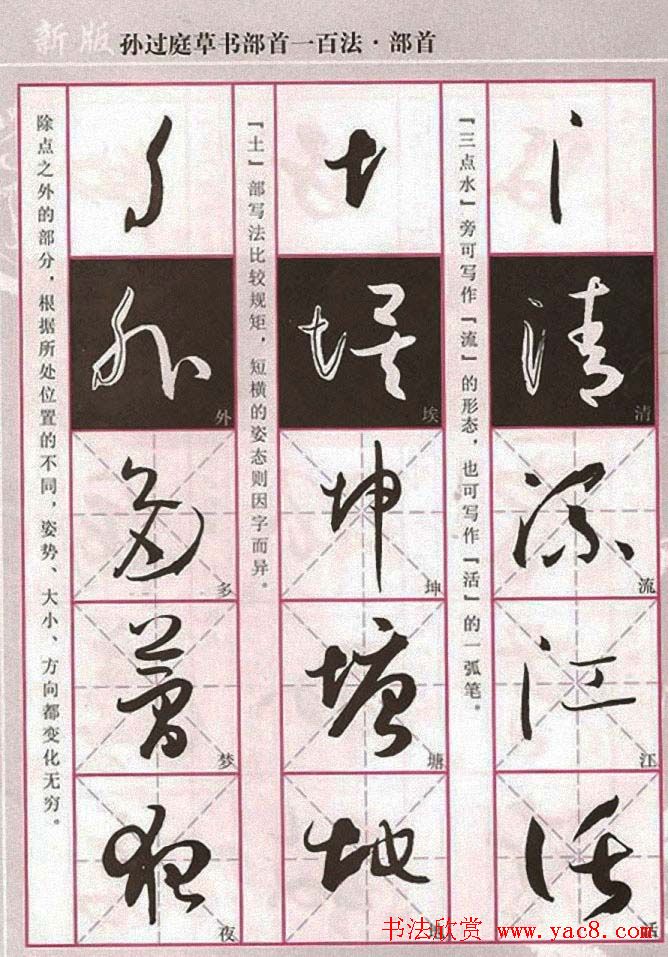 新版 孙过庭草书部首一百法·部首
『三点水』旁可写作『流』的形态，也可写作『活』的一弧笔。
清
流
江
活
『土』部写法比较规矩，短横的姿态则因字而异。
埃
坤
塘
地
除点之外的部分，根据所处位置的不同，姿势、大小、方向都变化无穷。
外
多
梦
夜
书法欣赏 www.yac8.com